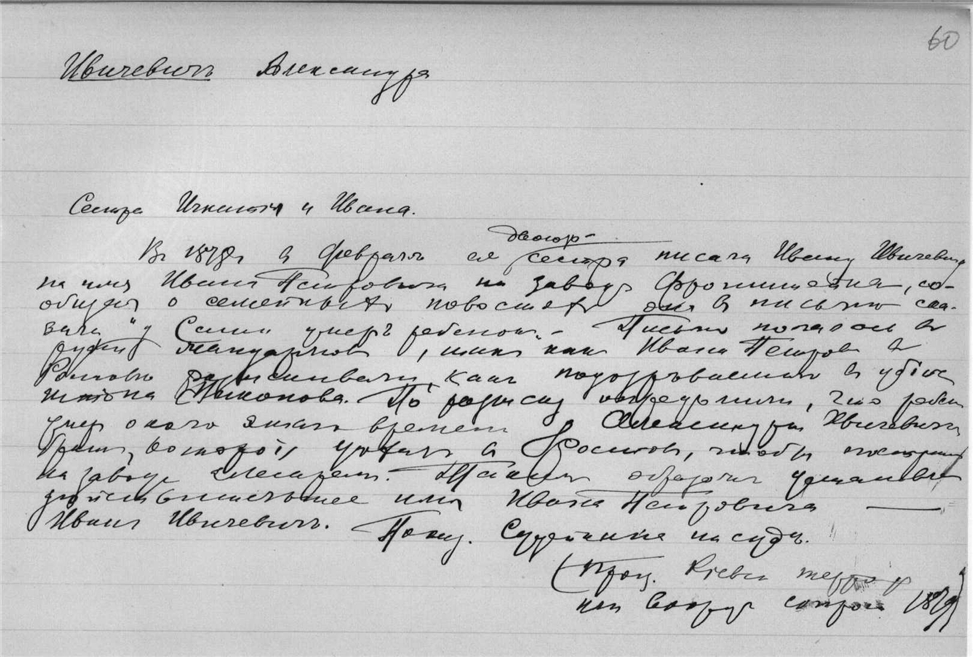 60
Ивичевичъ Александра
Сестра Игнатія и Ивана.
двоюр-
Въ 1878 въ февралѣ ея сестра писала Ивану Ивичевичу
на имя Ивана Петровича на заводъ Фронштейна, со-
общая о семейныхъ новостяхъ она въ письмѣ ска-
зала "у Саши умеръ ребенокъ". Письмо попалось въ
руки жандармовъ, такъ какъ Иванъ Петровъ въ
Ростовѣ разыскивали, какъ подозрѣваемаго въ убій
ствѣ Никонова. По розыску опредѣлили, что ребен
умеръ около этого времени Александры Ивичевичъ
братъ которой уѣхалъ въ Ростовъ, чтобы поступить
на заводъ слесаремъ. Такимъ образомъ установлен
дѣйствительное имя Ивана Петровича —
Иванъ Ивичевичъ.
Показ. Судейкина на судѣ.
(Проц. Кіевск террор
или вооруж сопрот 1879)